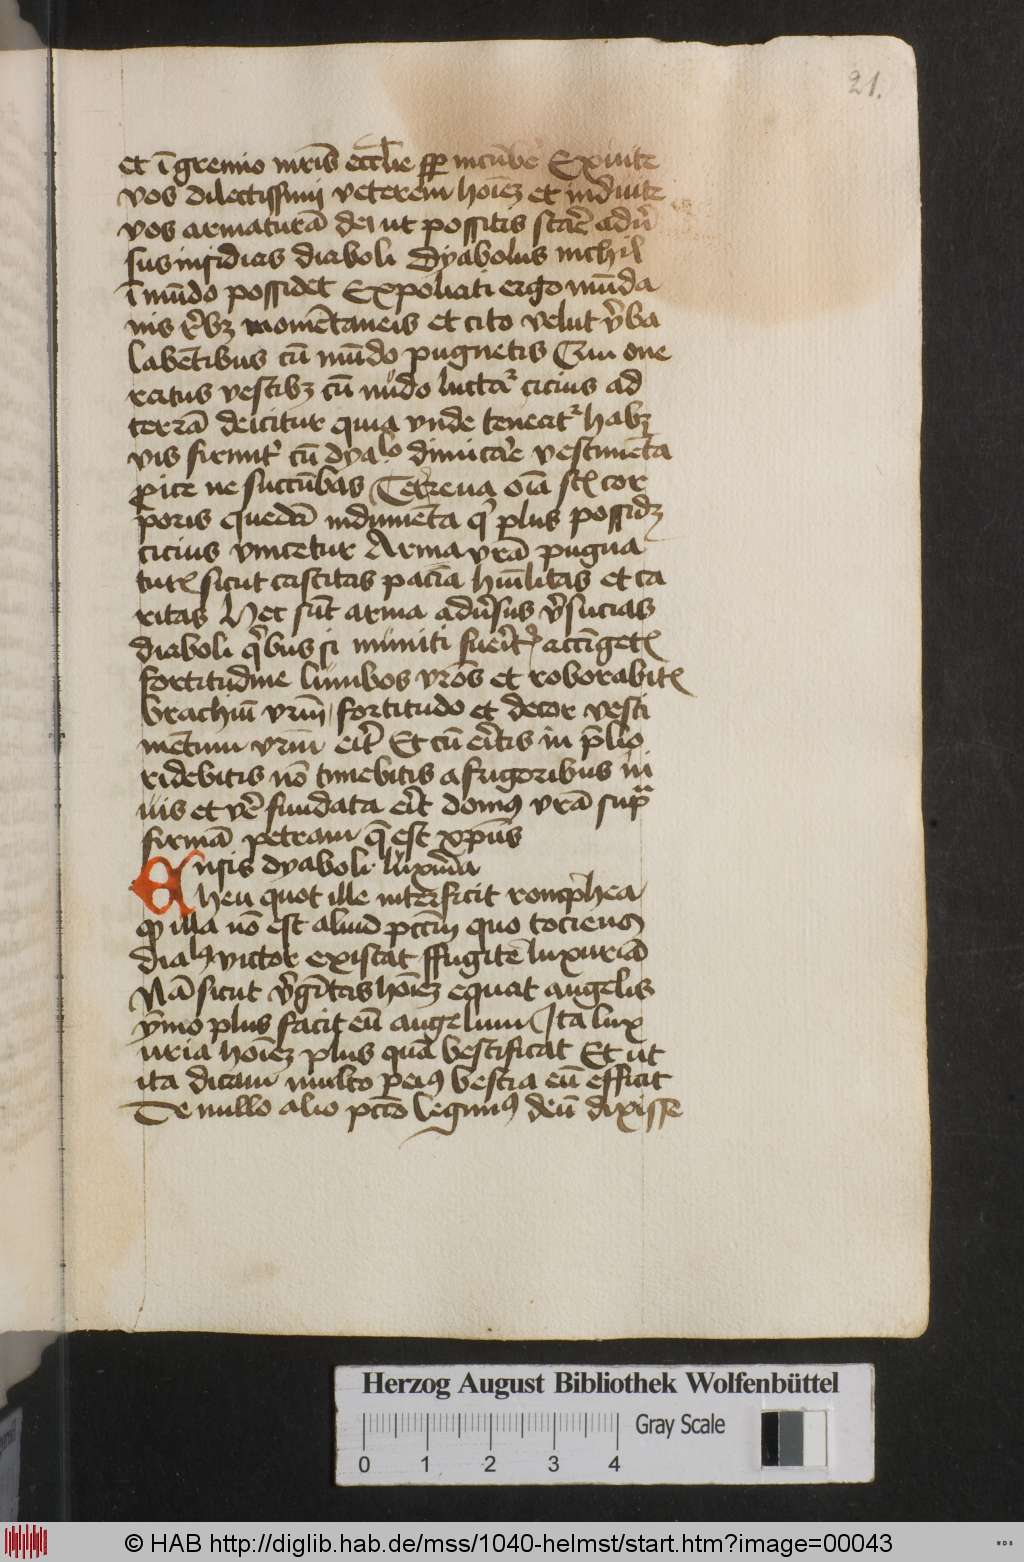 21.
et ī gremio mr̄is eccl̄ie sꝑ incūbe Exuite
vos dilectissimi veterem hoīeꝫ et induite
vos armaturā dei ut possitis stare adūˀ
sus insidias diaboli Dyabolus nichil
ī mūdo possidet Expoliati ergo mūda
nis r̄bꝫ momētaneis et cito velut v̄ba
labētibus cū mūdo pugnetis Cum one
ratus vestibꝫ cū nūdo luctaͬ cicius ad
terrā deicitur quia vnde teneatͬ habꝫ
vis firmitͬ cū dyalo dimicare vestimēta
ꝓice ne succūbas Terrena oīa st̄ cor
poris quedā indumēta qͥ plus possidꝫ
cicius vincetur Arma vrā pugna
tur sicut castitas paciā hūilitas et ca
ritas Hec sūt arma adūsus v̄sucias
diaboli qͥbus si mūniti fueritͥ accīgetͥ
fortitudine lumbos vr̄os et roborabitͥ
brachiū vrm̄ fortitudo et decor vesti
mētum vrm̄ erit Et cū eritis in p̄lio
ridebitis nō timebitis a frigoribus ni
uis et v̄e fundata erit domꝰ vrā supᵃ
firmā petram q̄ est xp̄us
Ensis dyaboli luxuria
heu quot ille interficit romphea
qꝫ illa nō est aliud pctm̄ quo tociens
dialꝰ victor existat ffugite luxuriā
Nā sicut v̄gītas hoīeꝫ equat angelis
ymo plus facit eū angelum Ita lux
uria hoīeꝫ plus quā bestificat Et ut
ita dicam multo peiꝰ bestia eū efficit
De nullo alio pctō legimꝰ deū dixisse
Herzog August Bibliothek Wolfenbüttel
Gray Scale
0 1 2 3 4
© HAB http://diglib.hab.de/mss/1040-helmst/start.htm?image=00043